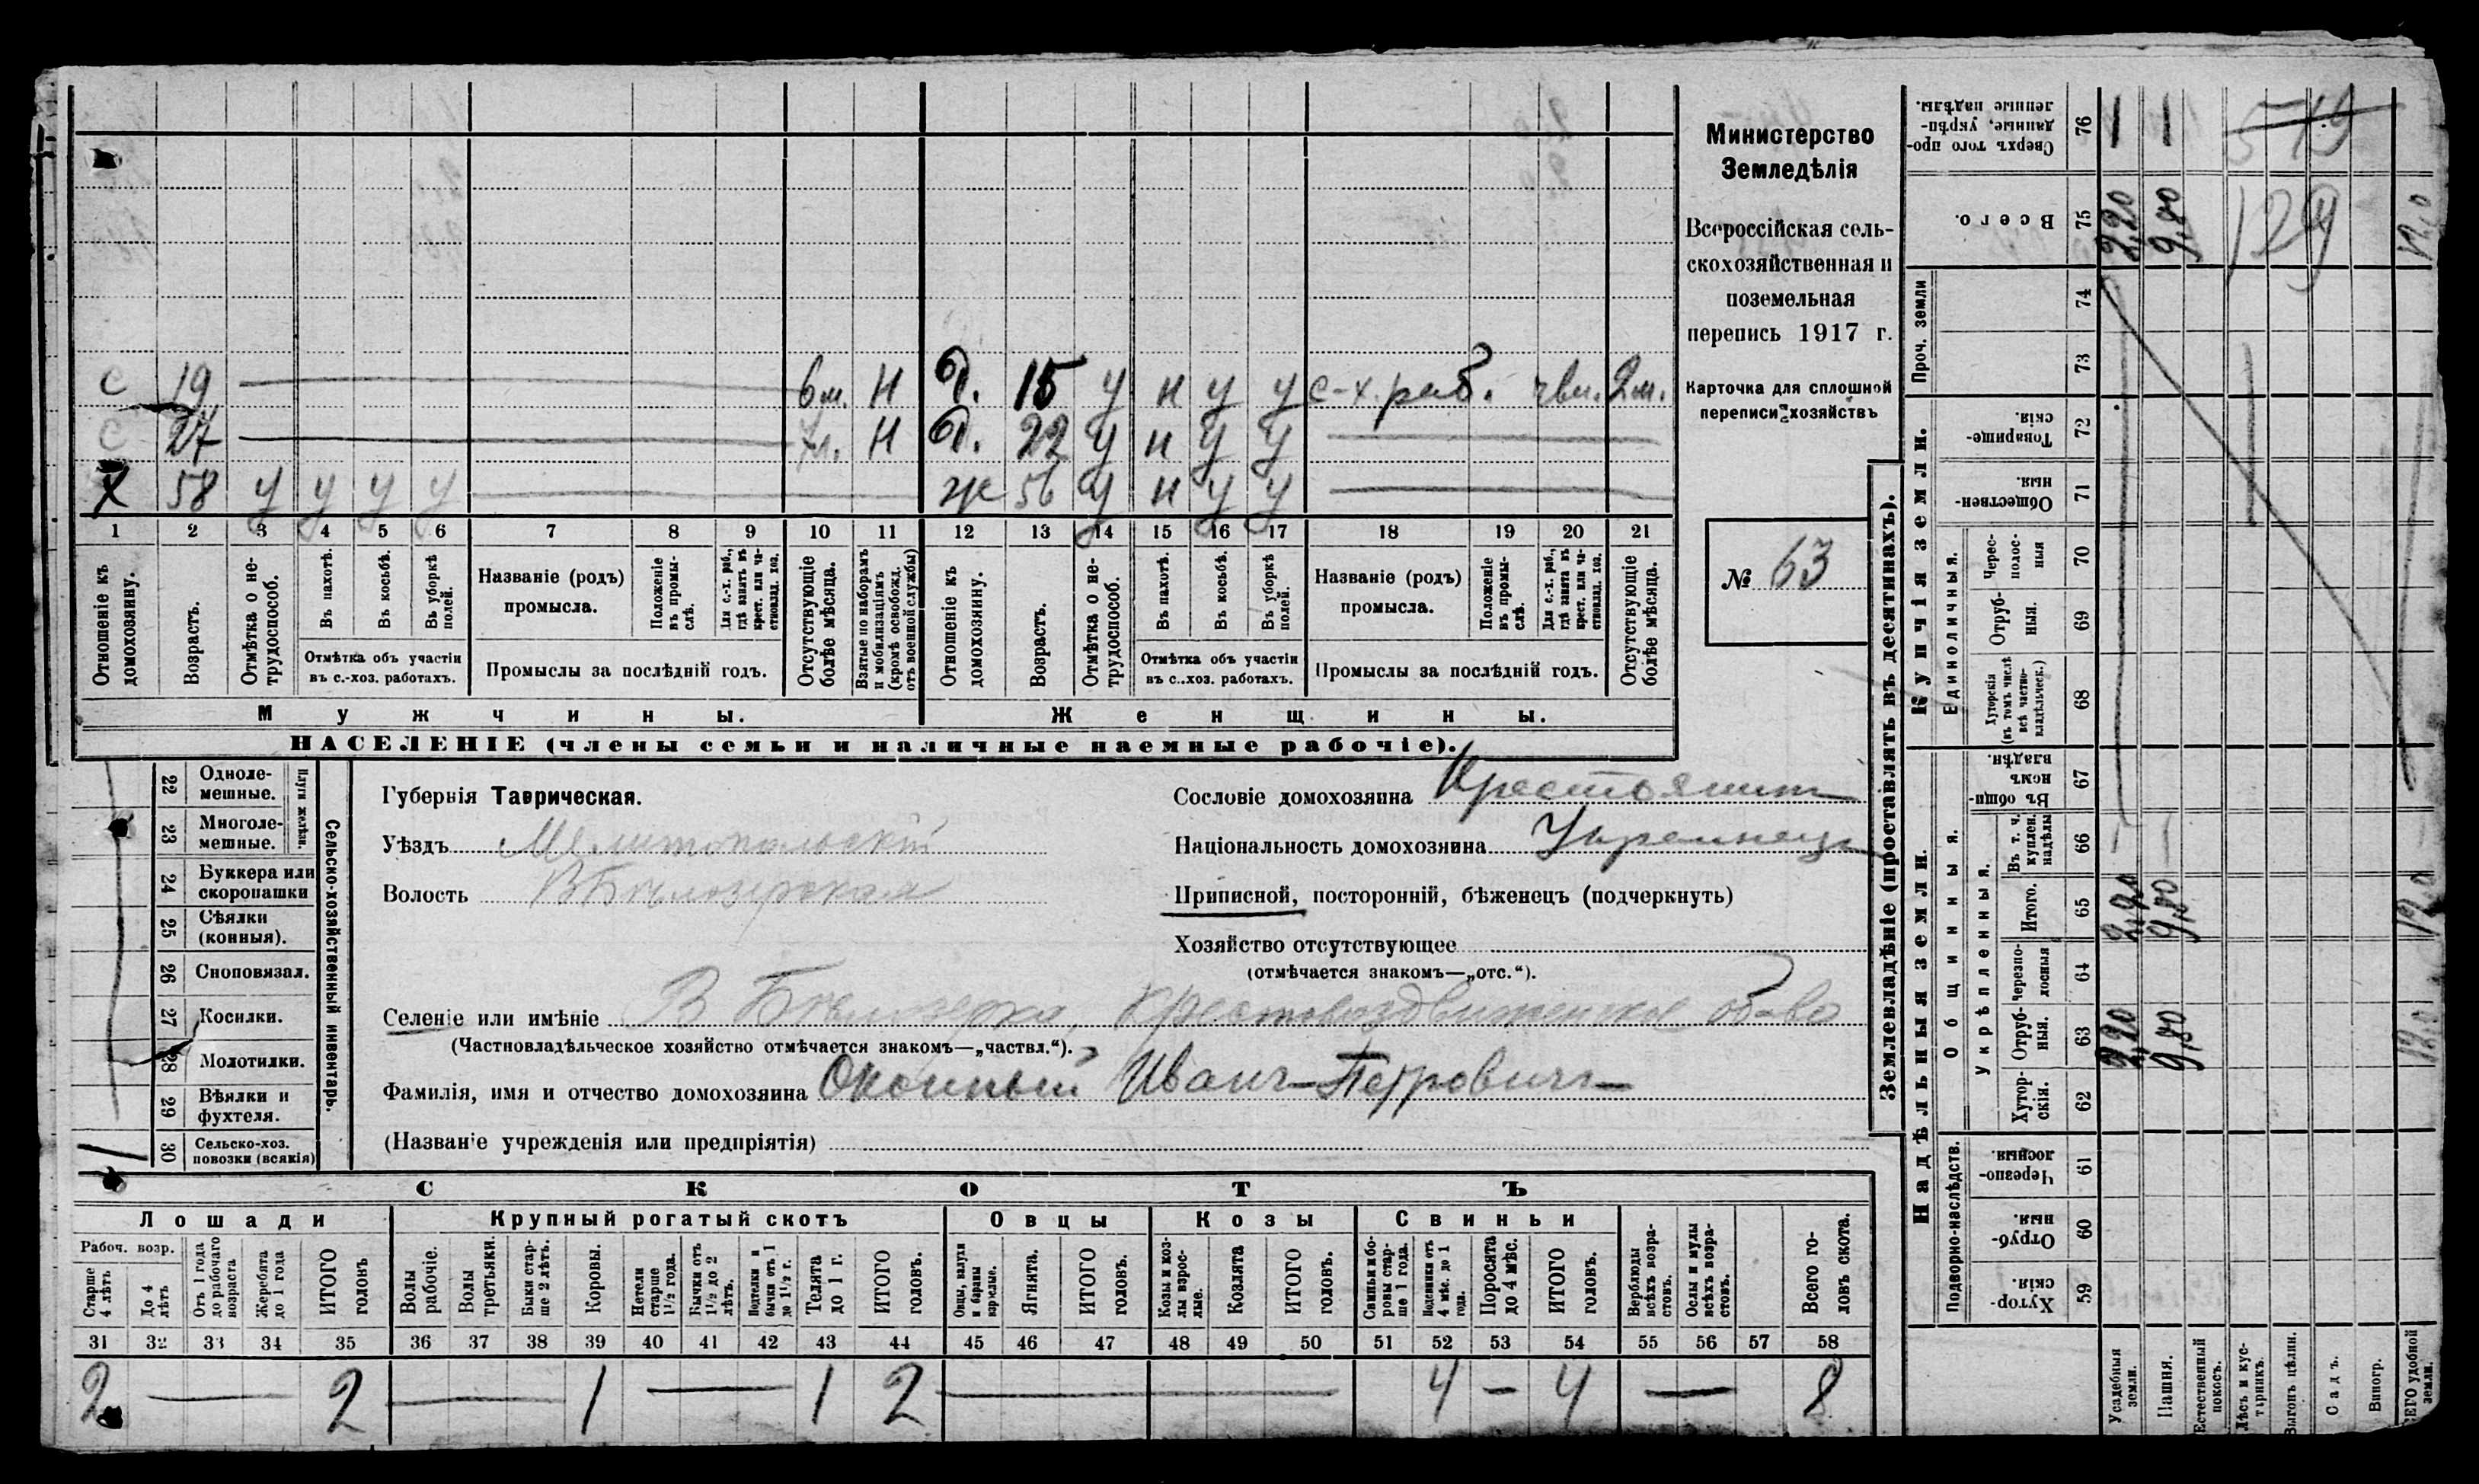 с 19 — 6 м. Н д. 15 у н у у с-х. раб. 2 м.
с 27 — Н д. 22 у н у у —
Х 58 у у у у — ж 56 у н у у —
1 2 3 4 5 6 7 8 9 10 11 12 13 14 15 16 17 18 19 20 21
Отношеніе къ домохозяину.
Возрастъ.
Отмѣтка о нетрудоспособ.
Въ пахотѣ.
Въ косьбѣ.
Въ уборкѣ полей.
Отмѣтка объ участіи въ с.-хоз. работахъ.
Названіе (родъ) промысла.
Положеніе въ промыслѣ.
Для с.-х. раб., гдѣ занятъ въ крест. или частновлад. хоз.
Промыслы за послѣдній годъ.
Отсутствующіе болѣе мѣсяца.
Взятые по наборамъ и мобилизаціямъ (кромѣ освобожд. отъ военной службы)
Отношеніе къ домохозяину.
Возрастъ.
Отмѣтка о нетрудоспособ.
Въ пахотѣ.
Въ косьбѣ.
Въ уборкѣ полей.
Отмѣтка объ участіи въ с.-хоз. работахъ.
Названіе (родъ) промысла.
Положеніе въ промыслѣ.
Для с.-х. раб., гдѣ занятъ въ крест. или частновлад. хоз.
Промыслы за послѣдній годъ.
Отсутствующіе болѣе мѣсяца.
Мужчины. Женщины.
НАСЕЛЕНІЕ (члены семьи и наличные наемные рабочіе).
Министерство
Земледѣлія
Всероссійская сель-
скохозяйственная и
поземельная
перепись 1917 г.
Карточка для сплошной
переписи хозяйствъ
№ 63
22 Одноле-
мешные.
23 Многоле-
мешные.
Плуги желѣзн.
24 Буккера или
скоропашки
25 Сѣялки
(конныя).
26 Сноповязал.
27 Косилки.
28 Молотилки.
29 Вѣялки и
фухтеля.
1 30 Сельско-хоз.
повозки (всякія)
Сельско-хозяйственный инвентарь.
Губернія Таврическая.
Уѣздъ Мелитопольскій
Волость В Бѣлозерская
Селеніе или имѣніе В Бѣлозерка, Крестовоздвиженское об-во
(Частновладѣльческое хозяйство отмѣчается знакомъ—„частвл.“).
Фамилія, имя и отчество домохозяина Оконный Иванъ Петровичъ
(Названіе учрежденія или предпріятія)
Сословіе домохозяина Крестьянинъ
Національность домохозяина Украинецъ
Приписной, посторонній, бѣженецъ (подчеркнуть)
Хозяйство отсутствующее
(отмѣчается знакомъ—„отс.“).
СКОТЪ
Лошади Крупный рогатый скотъ Овцы Козы Свиньи
Рабоч. возр.
Старше 4 лѣтъ
До 4 лѣтъ
Отъ 1 года до рабочаго возраста
Жеребята до 1 года
ИТОГО головъ
Волы рабочіе.
Волы третьяки.
Быки старше 2 лѣтъ.
Коровы.
Нетели старше 1½ года.
Бычки отъ 1½ до 2 лѣтъ.
Подтелки и бычки отъ 1 до 1½ г.
Телята до 1 г.
ИТОГО головъ.
Овцы, валухи и бараны взрослые.
Ягнята.
ИТОГО головъ.
Козы и козлы взрослые.
Козлята
ИТОГО головъ.
Свиньи и боровы старше 1 года.
Подсвинки отъ 4 мѣс. до 1 года.
Поросята до 4 мѣс.
ИТОГО головъ.
Верблюды всѣхъ возрастовъ.
Ослы и мулы всѣхъ возрастовъ.
Всего головъ скота.
31 32 33 34 35 36 37 38 39 40 41 42 43 44 45 46 47 48 49 50 51 52 53 54 55 56 57 58
2 — 2 — 1 — 1 2 — 4 — 4 — 8
Землевладѣніе (проставлять въ десятинахъ).
Надѣльныя земли. Купчія земли.
Подворно-наслѣдств.
Хуторскія 59
Отрубныя. 60
Черезполосныя. 61
Общинныя.
Укрѣпленныя.
Хуторскія. 62
Отрубныя. 63 2,20 9,80 12,0
Черезполосныя 64
Итого. 65 2,20 9,80 12,0
Въ т. ч. куплен. надѣлы 66 — —
Въ общинномъ владѣн. 67
Единоличныя.
Хуторскія (въ томъ числѣ всѣ частновладѣльческ.) 68
Отрубныя. 69
Чересполосныя 70
Общественныя. 71
Товарищескія. 72
Проч. земли 73 74
Всего. 75 2,20 9,80 129 12,0
Сверхъ того проданные, укрѣпленные надѣлы. 76 — — 519
Усадебныя земли.
Пашня.
Естественный покосъ.
Лѣсъ и кустарникъ.
Выгонъ цѣлин.
Садъ.
Виногр.
ВСЕГО удобной земли.